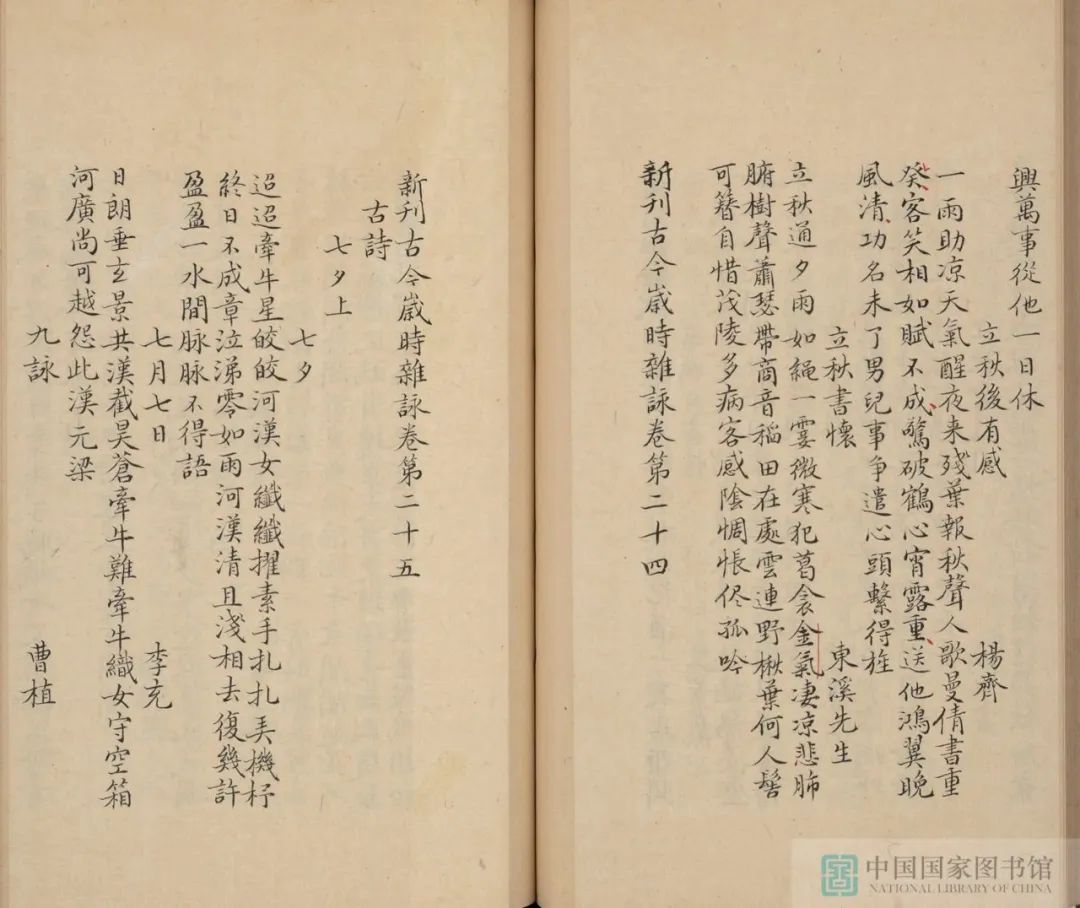 興萬事從他一日休
立秋後有感 楊齊
一雨助凉天氣醒夜来殘葉報秋聲人歌曼倩書重
癸客笑相如賦不成驚破鶴心宵露重送他鴻翼晚
風清功名未了男兒事争遣心頭繫得旌
立秋書懷 東溪先生
立秋通夕雨如繩一霎微寒犯葛衾金氣凄凉悲肺
腑樹聲蕭瑟帶商音稲田在處雲連野楸葉何人髻
可簪自惜茂陵多病客感陰惆悵倦孤吟
新刊古今歲時雜詠卷第二十四
新刊古今歲時雜詠卷第二十五
古詩
七夕上
七夕
迢迢牽牛星皎皎河漢女纖纖擢素手扎扎弄機杼
終日不成章泣涕零如雨河漢清且淺相去復幾許
盈盈一水間脉脉不得語
七月七日 李充
日朗垂玄景共漢截昊蒼牽牛難牽牛織女守空箱
河廣尚可越怨此漢元梁
九詠 曹植
中国国家图书馆
NATIONAL LIBRARY OF CHINA